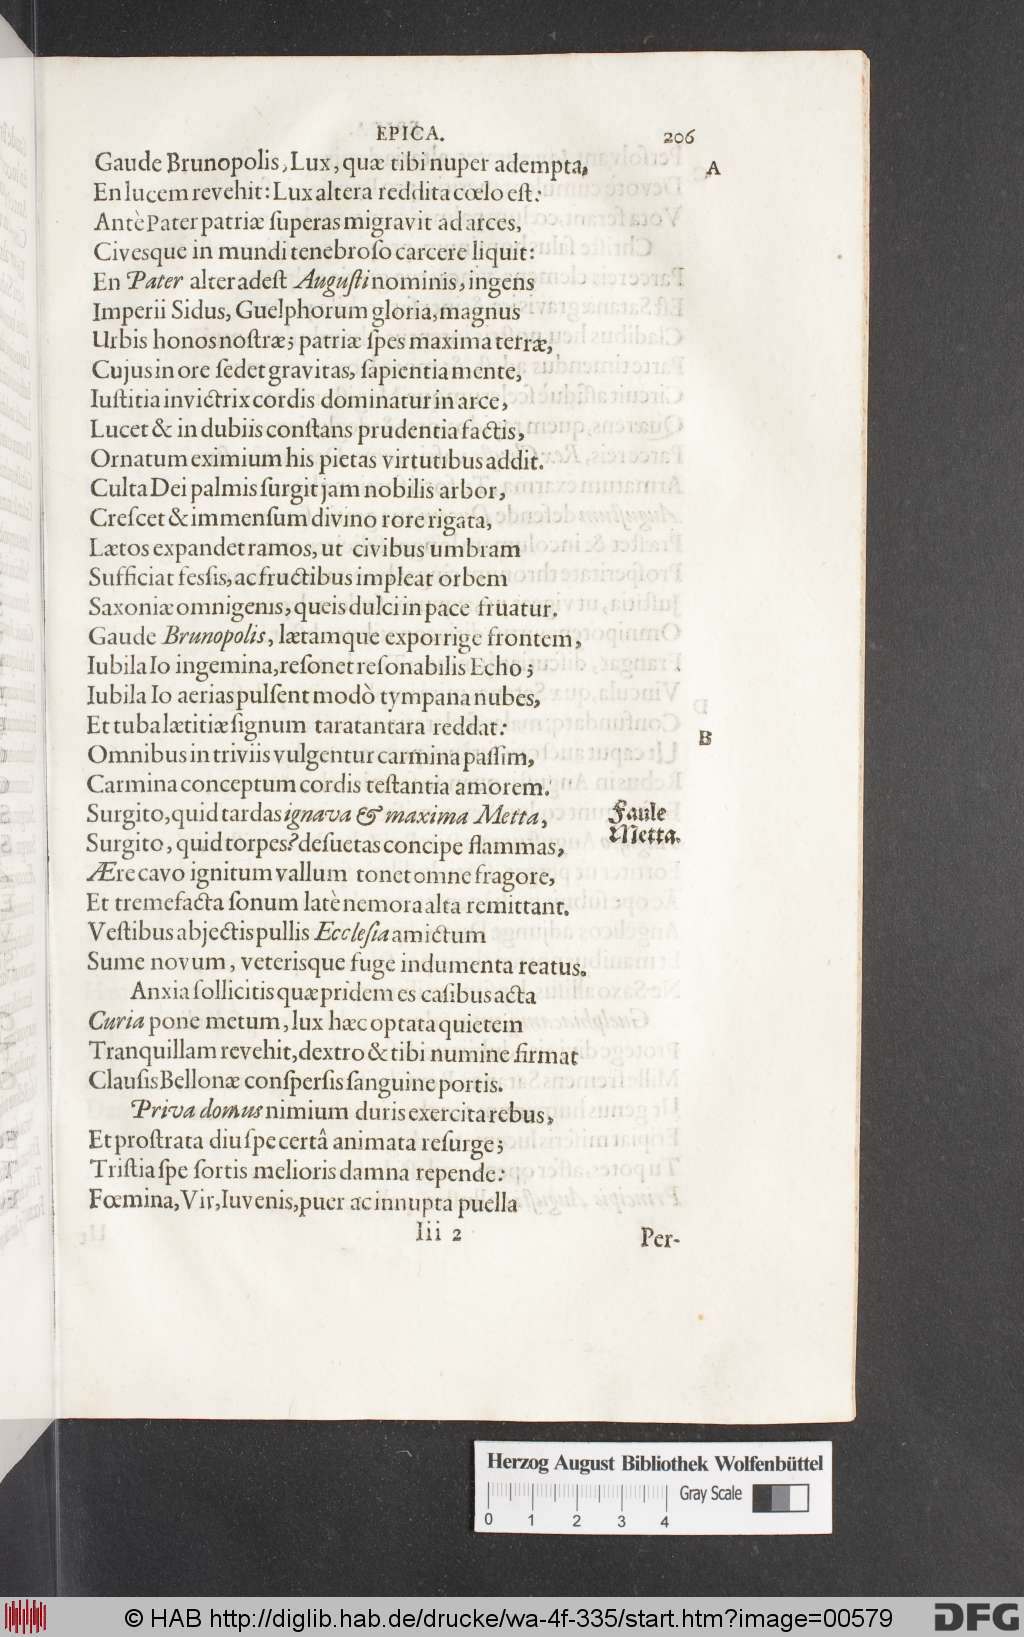 EPICA. 206
Gaude Brunopolis, Lux, quæ tibi nuper adempta, A
En lucem revehit: Lux altera reddita cœlo eſt:
Antè Pater patriæ ſuperas migravit ad arces,
Civesque in mundi tenebroſo carcere liquit:
En Pater alter adeſt Auguſti nominis, ingens
Imperii Sidus, Guelphorum gloria, magnus
Urbis honos noſtræ; patriæ ſpes maxima terræ,
Cujus in ore ſedet gravitas, ſapientia mente,
Iuſtitia invictrix cordis dominatur in arce,
Lucet & in dubiis conſtans prudentia factis,
Ornatum eximium his pietas virtutibus addit.
Culta Dei palmis ſurgit jam nobilis arbor,
Creſcet & immenſum divino rore rigata,
Lætos expandet ramos, ut civibus umbram
Sufficiat feſsis, ac fructibus impleat orbem
Saxoniæ omnigenis, queis dulci in pace fruatur.
Gaude Brunopolis, lætamque exporrige frontem,
Iubila Io ingemina, reſonet reſonabilis Echo;
Iubila Io aerias pulſent modò tympana nubes,
Et tuba lætitiæ ſignum taratantara reddat:
B
Omnibus in triviis vulgentur carmina paſſim,
Carmina conceptum cordis teſtantia amorem.
Surgito, quid tardas ignava & maxima Metta, Faule
Surgito, quid torpes? deſuetas concipe flammas, Metta.
Ære cavo ignitum vallum tonet omne fragore,
Et tremefacta ſonum latè nemora alta remittant.
Veſtibus abjectis pullis Eccleſia amictum
Sume novum, veterisque fuge indumenta reatus.
Anxia ſollicitis quæ pridem es caſibus acta
Curia pone metum, lux hæc optata quietem
Tranquillam revehit, dextro & tibi numine firmat
Clauſis Bellonæ conſperſis ſanguine portis.
Priva domus nimium duris exercita rebus,
Et proſtrata diu ſpe certâ animata reſurge;
Triſtia ſpe ſortis melioris damna repende:
Fœmina, Vir, Iuvenis, puer ac innupta puella
Iii 2 Per-
Herzog August Bibliothek Wolfenbüttel
Gray Scale
0 1 2 3 4
© HAB http://diglib.hab.de/drucke/wa-4f-335/start.htm?image=00579 DFG